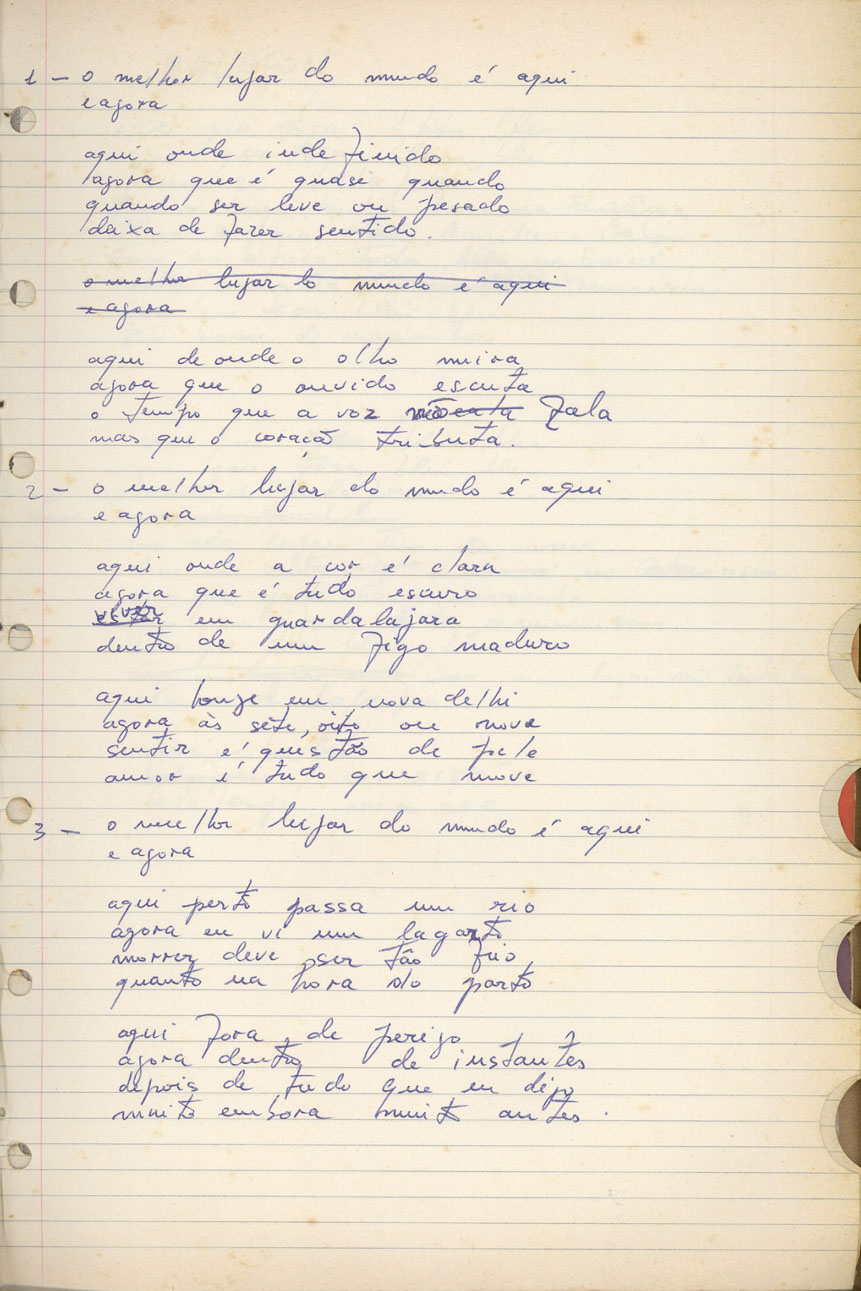 1 - o melhor lugar do mundo é aqui
e agora
aqui onde indefinido
agora que é quase quando
quando ser leve ou pesado
deixa de fazer sentido.
o melhor lugar do mundo é aqui
e agora
aqui de onde o olho mira
agora que o ouvido escuta
o tempo que a voz fala
mas que o coração tributa.
2 - o melhor lugar do mundo é aqui
e agora
aqui onde a cor é clara
agora que é tudo escuro
viver em guardalajara
dentro de um figo maduro
aqui longe em nova delhi
agora às sete, oito ou nove
sentir é questão de pele
amor é tudo que move
3 - o melhor lugar do mundo é aqui
e agora
aqui perto passa um rio
agora eu vi um lagarto
morrer deve ser tão frio
quanto na hora do parto
aqui fora de perigo
agora dentro de instantes
depois de tudo que eu digo
muito embora muito antes.